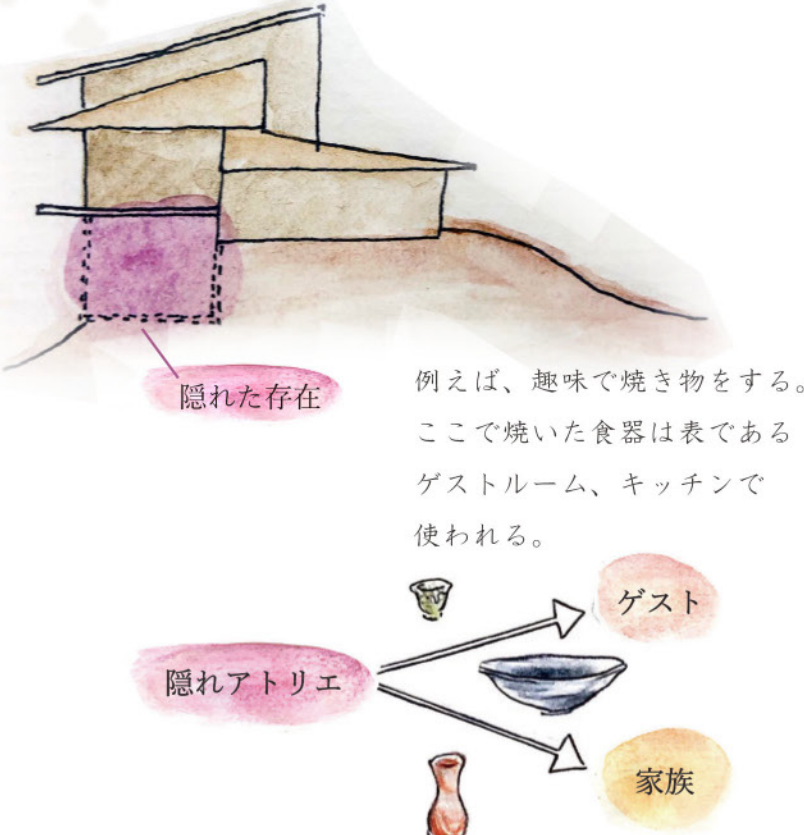 隠れた存在
例えば、趣味で焼き物をする。
ここで焼いた食器は表である
ゲストルーム、キッチンで
使われる。
ゲスト
隠れアトリエ
家族